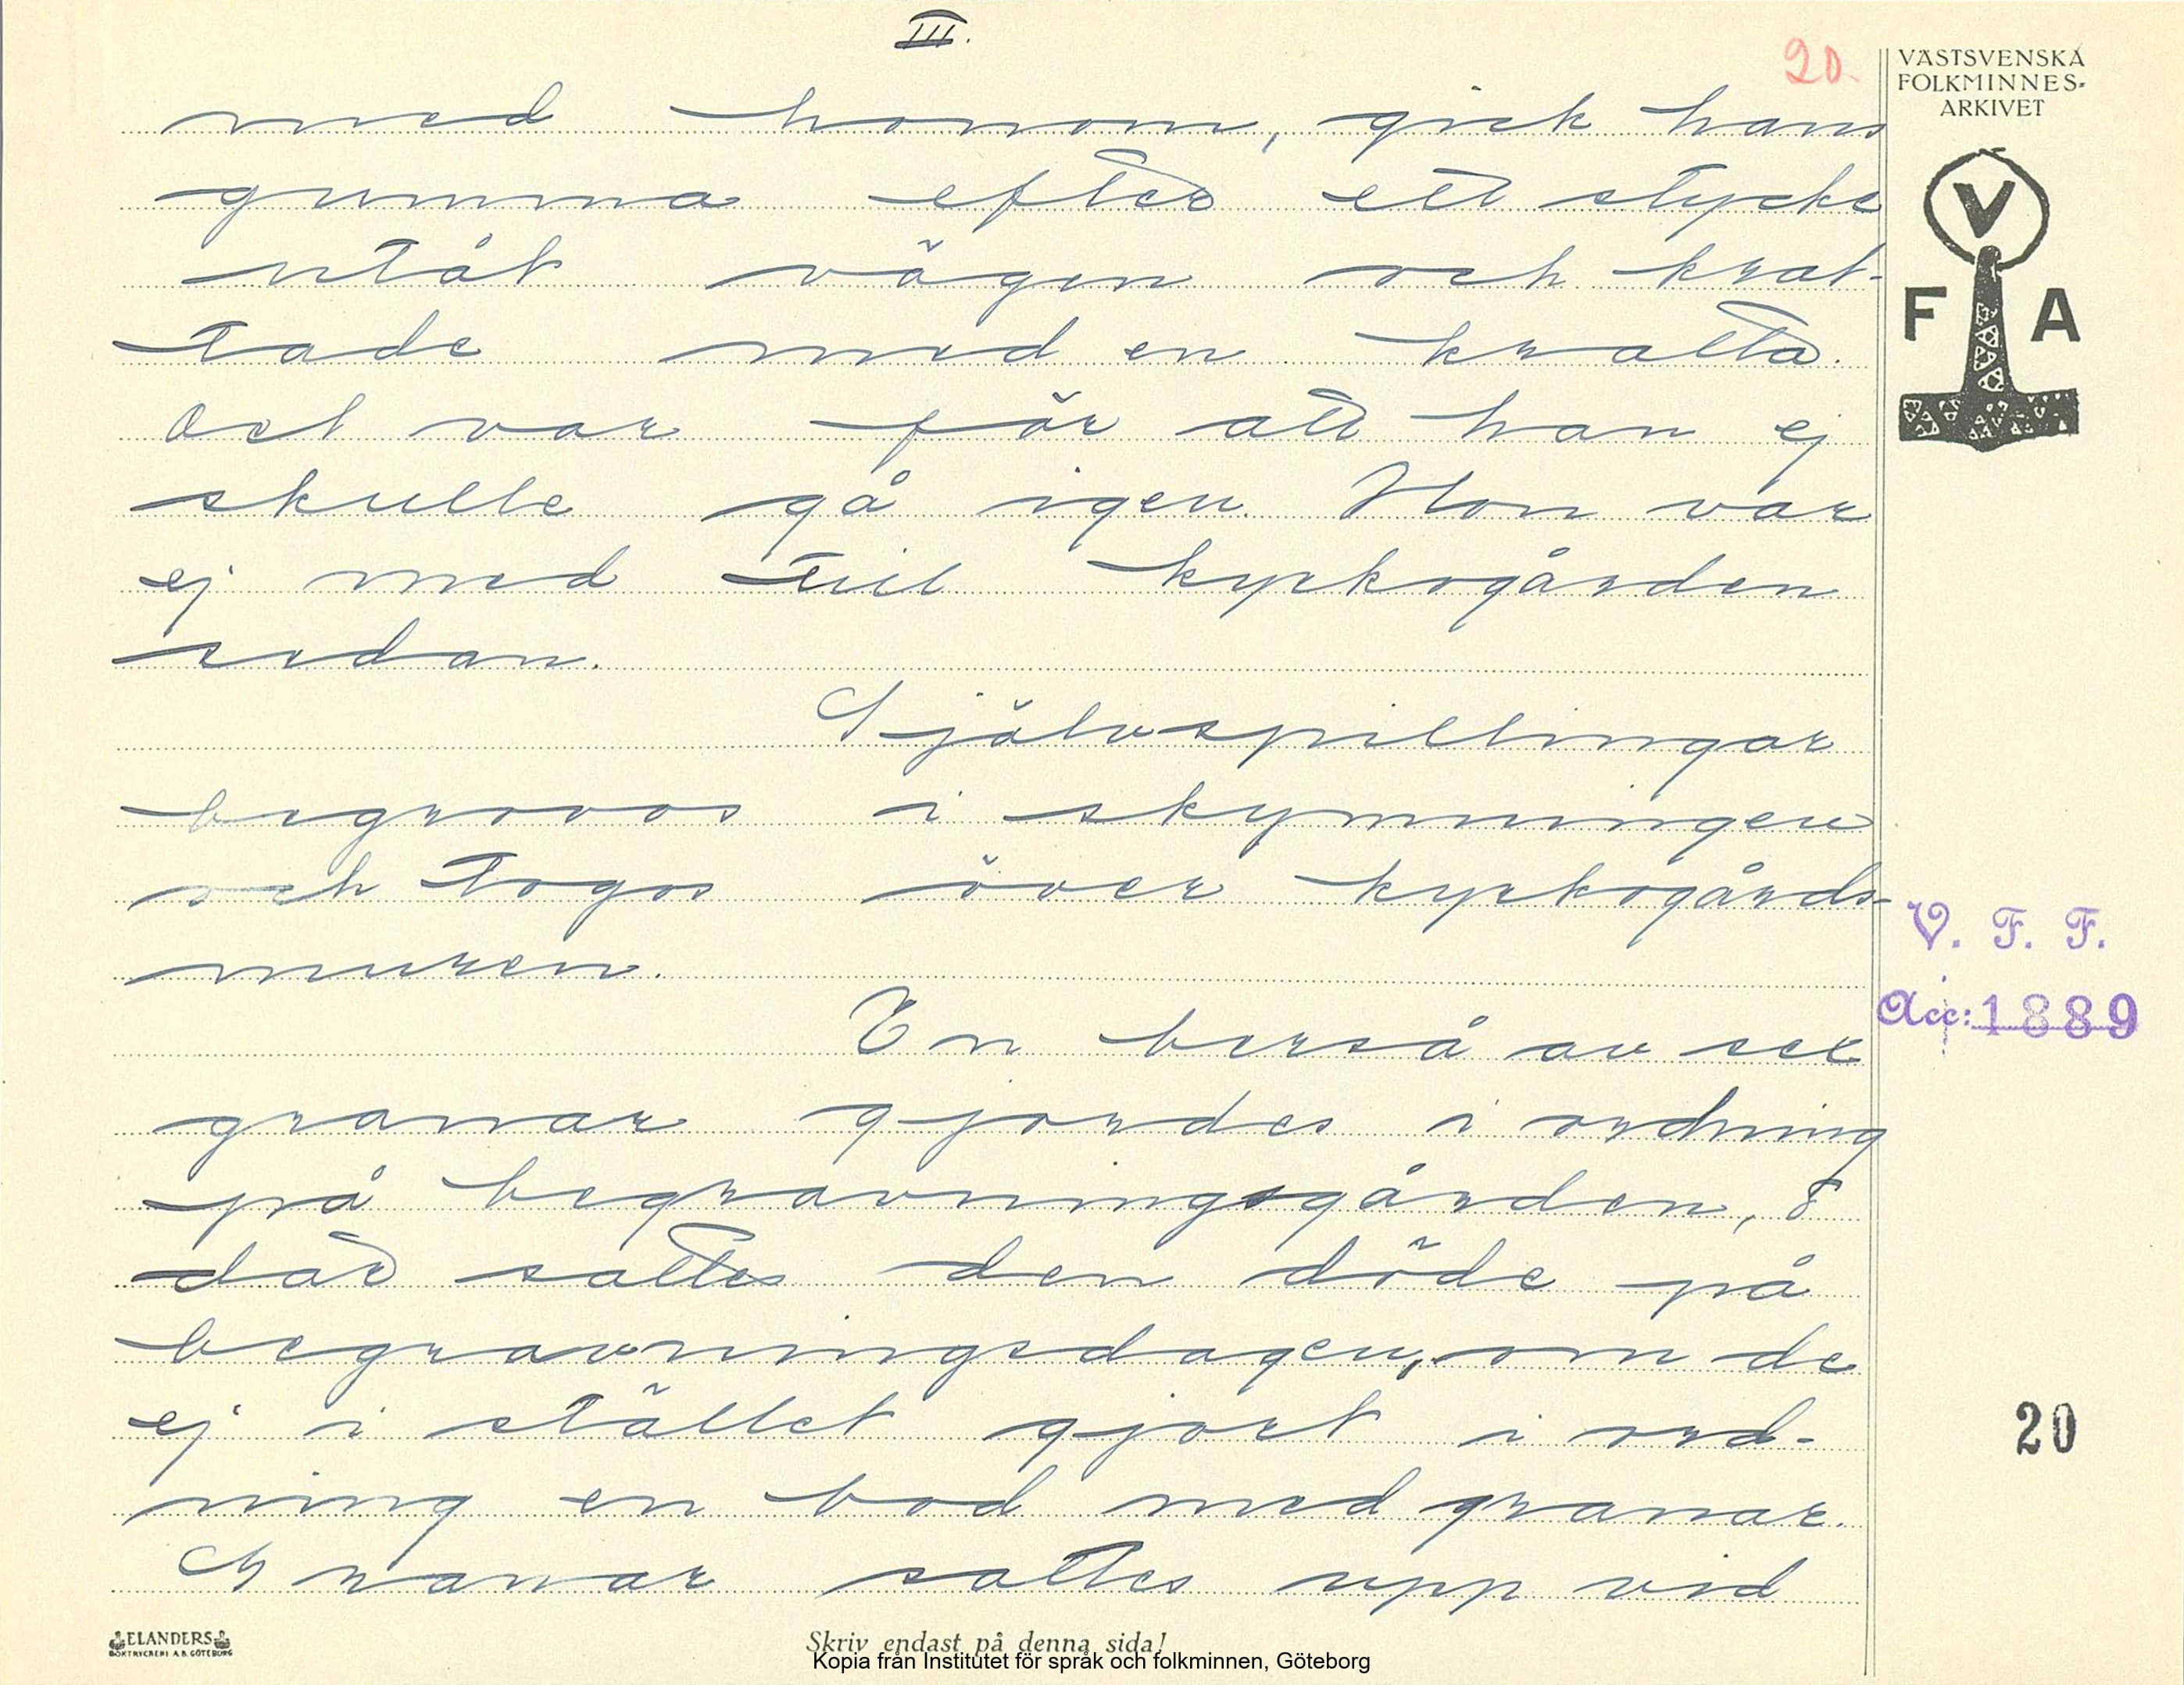 III.
20.
VÄSTSVENSKA
FOLKMINNES-
ARKIVET
V
F A
med honom, gick hans
gumma efter ett stycke
utåt vägen och krat-
tade med en kratta.
Det var för att han ej
skulle gå igen. Hon var
ej med till kyrkogården
sedan.
Självspillingar
begrovos i skymningen
och togos över kyrkogårds-
muren.
V. F. F.
Acc: 1889
En berså av sex
granar gjordes i ordning
på begravningsgården, &
där sattes den döde på
begravningsdagen, om de
ej i stället gjort i ord-
20
ning en bod med granar.
Granar sattes upp vid
ELANDERS
BOKTRYCKERI A.B. GÖTEBORG
Skriv endast på denna sida!
Kopia från Institutet för språk och folkminnen, Göteborg